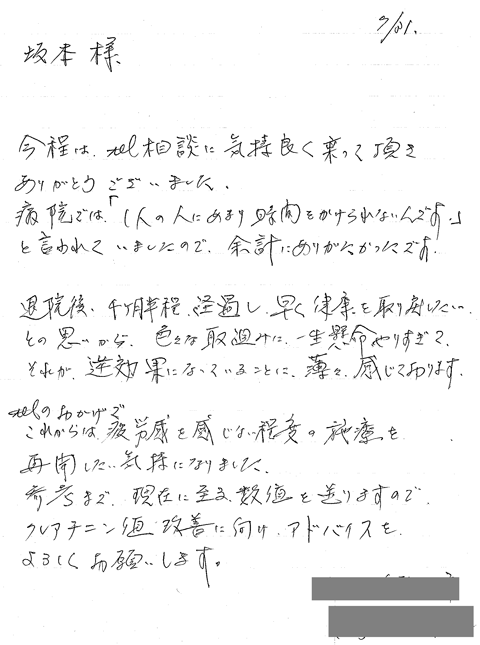 7/31.
坂本様
今程は、tel相談に気持良く乗って頂き
ありがとうございました。
病院では、「1人の人にあまり時間をかけられないんです。」
と言われていましたので、余計にありがたかったです。
退院後、1ヶ月半程経過し、早く健康を取り戻したい、
との思いから、色々な取組みに、一生懸命やりすぎて、
それが、逆効果になっていることに、薄々、感じております。
telのおかげで
これからは、疲労感を感じない程度の施療を
再開したい気持になりました。
参考まで、現在に至る数値を送りますので、
クレアチニン値改善に向け、アドバイスを、
よろしくお願いします。